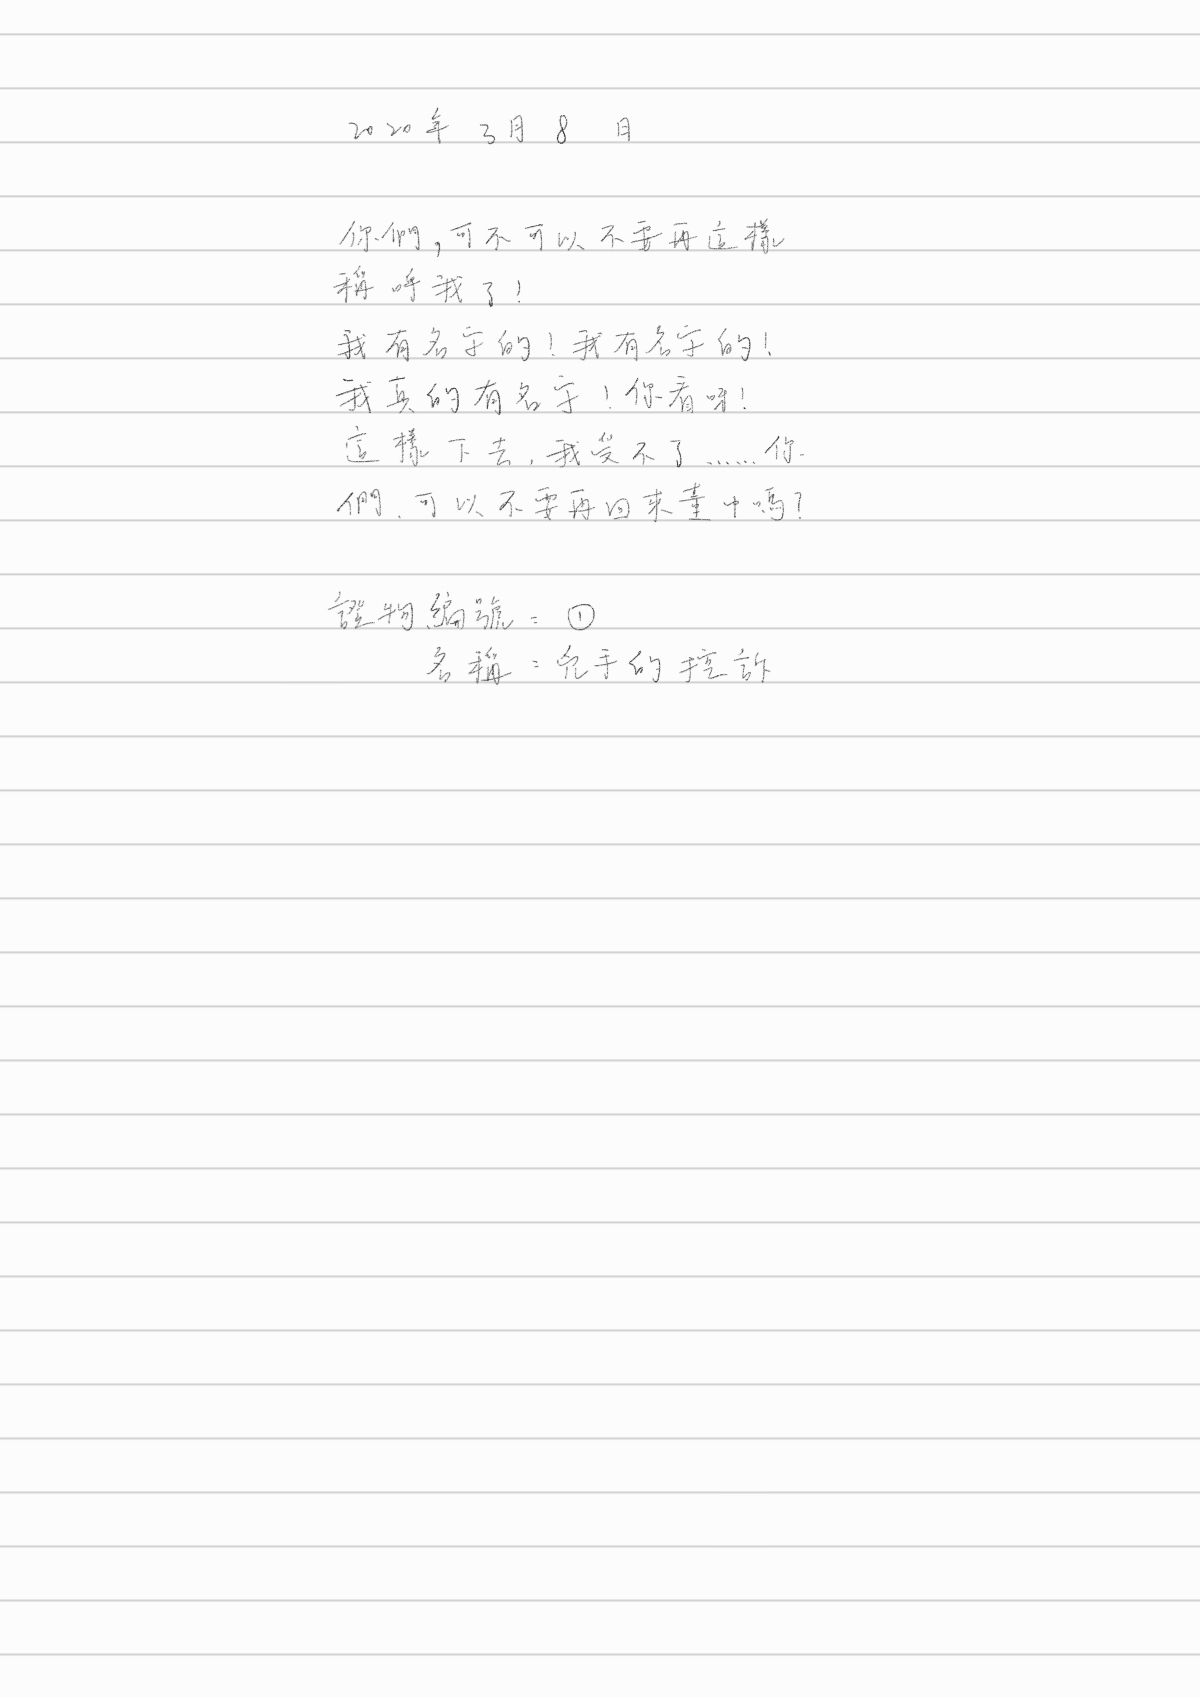 2020年 3月 8 日
你們,可不可以不要再這樣
稱呼我了!
我有名字的!我有名字的!
我真的有名字!你看呀!
這樣下去,我受不了……你
們,可以不要再回來臺中嗎?
證物編號:①
名稱:兇手的控訴